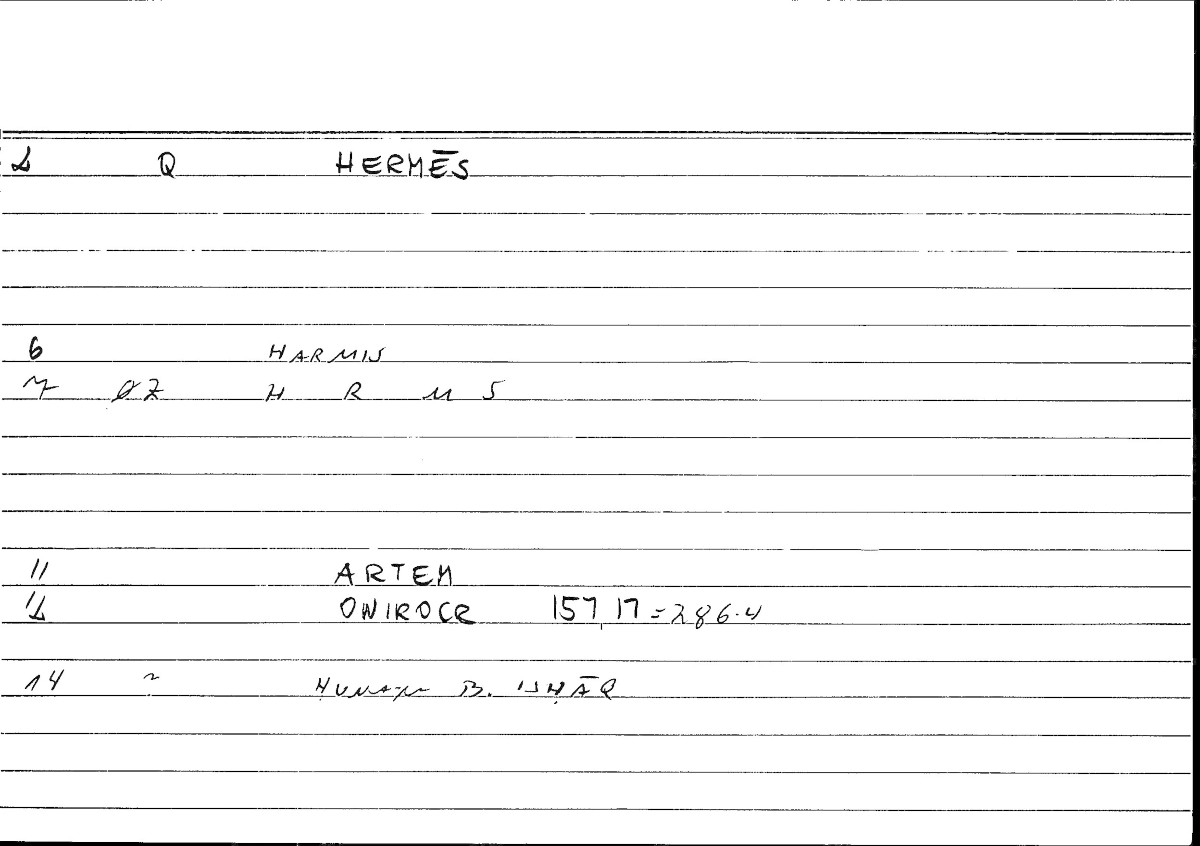 2 Q HERMĒS
6 HARMIS
7 ØZ H R M S
11 ARTEM
12 ONIROCR 157,17=286.4
14 ~ ḤUNAYN B. ISḤĀQ